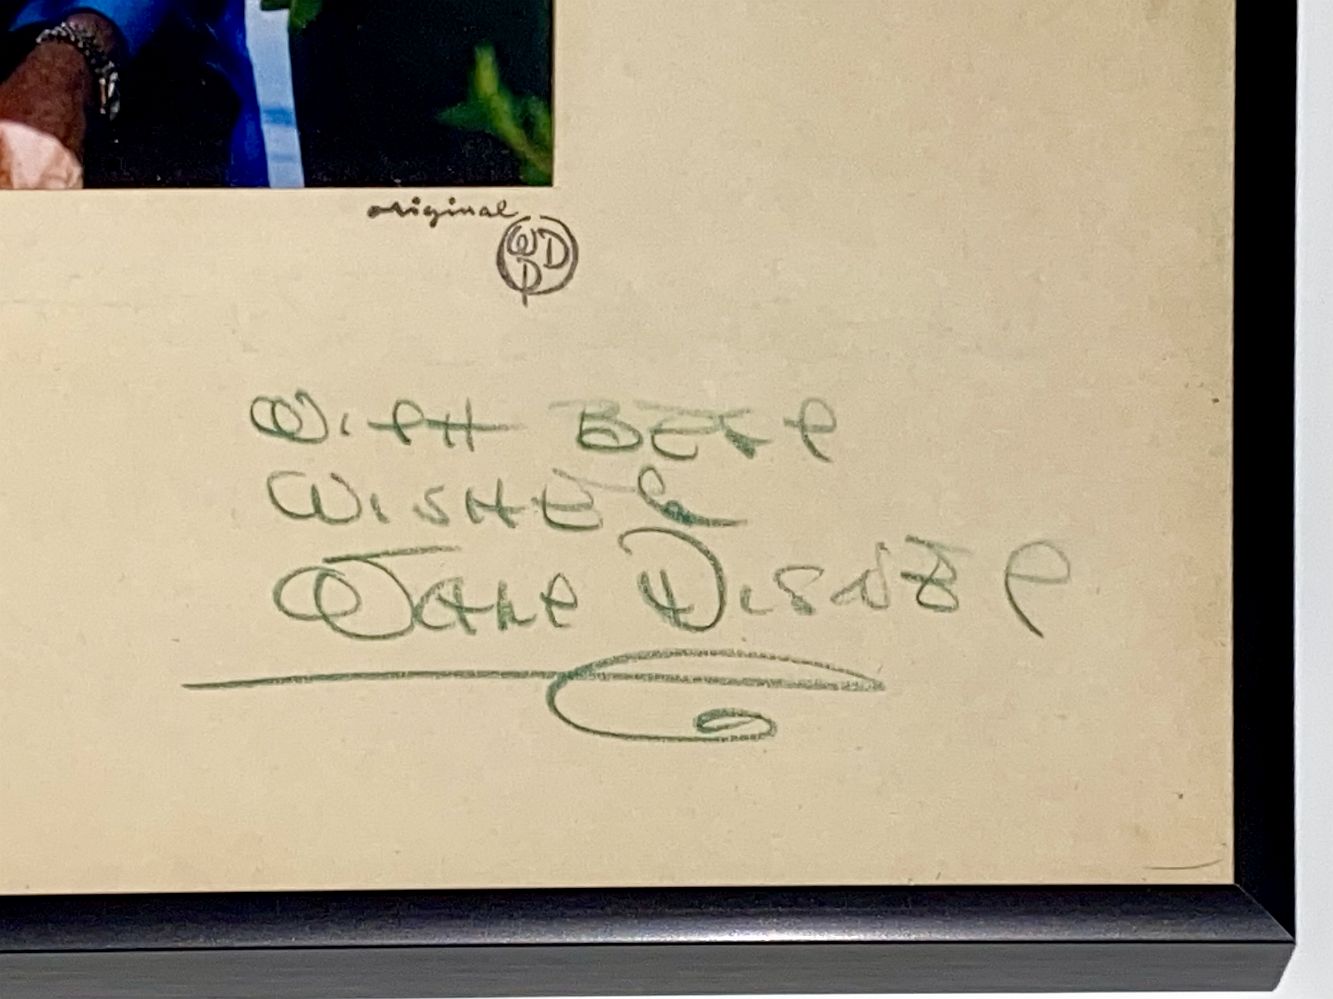 original
WDP
WITH BEST
WISHES
WALT DISNEY